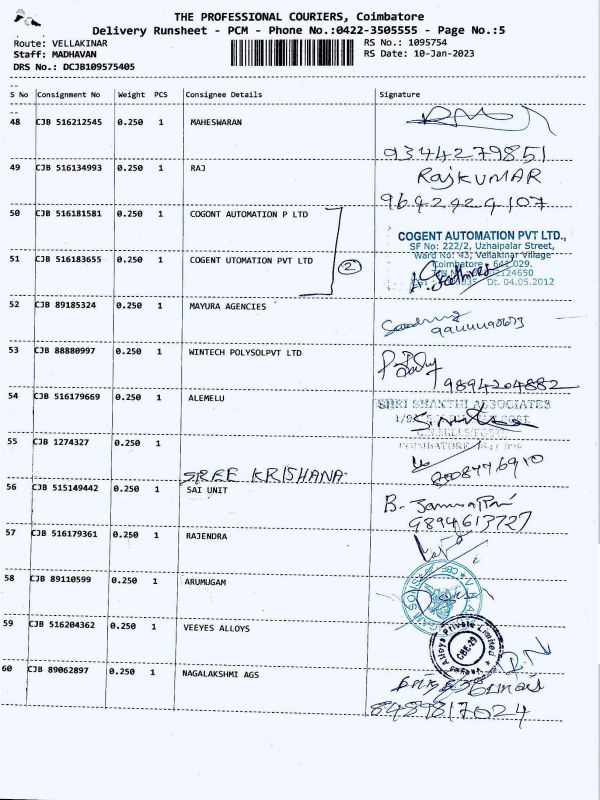 THE PROFESSIONAL COURIERS, Coimbatore
Delivery Runsheet - PCM - Phone No.:0422-3505555 - Page No.:5
Route: VELLAKINAR RS No.: 1095754
Staff: MADHAVAN RS Date: 10-Jan-2023
DRS No.: DCJB109575405
S No Consignment No Weight PCS Consignee Details Signature
48 CJB 516212545 0.250 1 MAHESWARAN
9344279851
49 CJB 516134993 0.250 1 RAJ RAJKUMAR
9642424107
50 CJB 516181581 0.250 1 COGONT AUTOMATION P LTD
COGENT AUTOMATION PVT LTD.,
SF No: 222/2, Uzhaipalar Street,
Ward No: 43, Vellakinar Village
51 CJB 516183655 0.250 1 COGENT UTOMATION PVT LTD 2
Coimbatore - 641 029.
Dt. 04.05.2012
52 CJB 89185324 0.250 1 MAYURA AGENCIES
53 CJB 88880997 0.250 1 WINTECH POLYSOLPVT LTD
9894204882
54 CJB 516179669 0.250 1 ALEMELU
SHRI SHAKTHI ASSOCIATES
55 CJB 1274327 0.250 1
SREE KRISHANA
56 CJB 515149442 0.250 1 SAI UNIT
9894613727
57 CJB 516179361 0.250 1 RAJENDRA
58 CJB 89110599 0.250 1 ARUMUGAM
59 CJB 516204362 0.250 1 VEEYES ALLOYS
Alloys Private Limited
CBE-29
60 CJB 89062897 0.250 1 NAGALAKSHMI AGS
8489817024